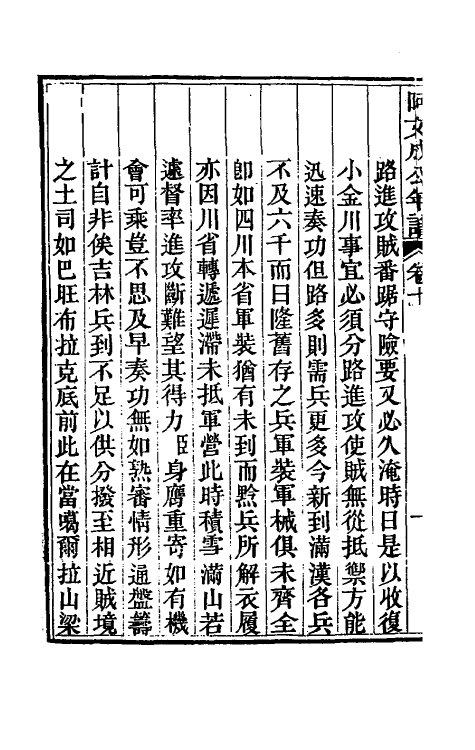 阿文成公年譜 卷十 一
路進攻賊番踞守險要又必久淹時日是以收復
小金川事宜必須分路進攻使賊無從抵禦方能
迅速奏功但路多則需兵更多今新到滿漢各兵
不及六千而日隆舊存之兵軍裝軍械俱未齊全
卽如四川本省軍裝猶有未到而黔兵所解衣履
亦因川省轉遞遲滯未抵軍營此時積雪滿山若
遽督率進攻斷難望其得力臣身膺重寄如有機
會可乘豈不思及早奏功無如熟審情形通盤籌
計自非俟吉林兵到不足以供分撥至相近賊境
之土司如巴旺布拉克底前此在當噶爾拉山梁